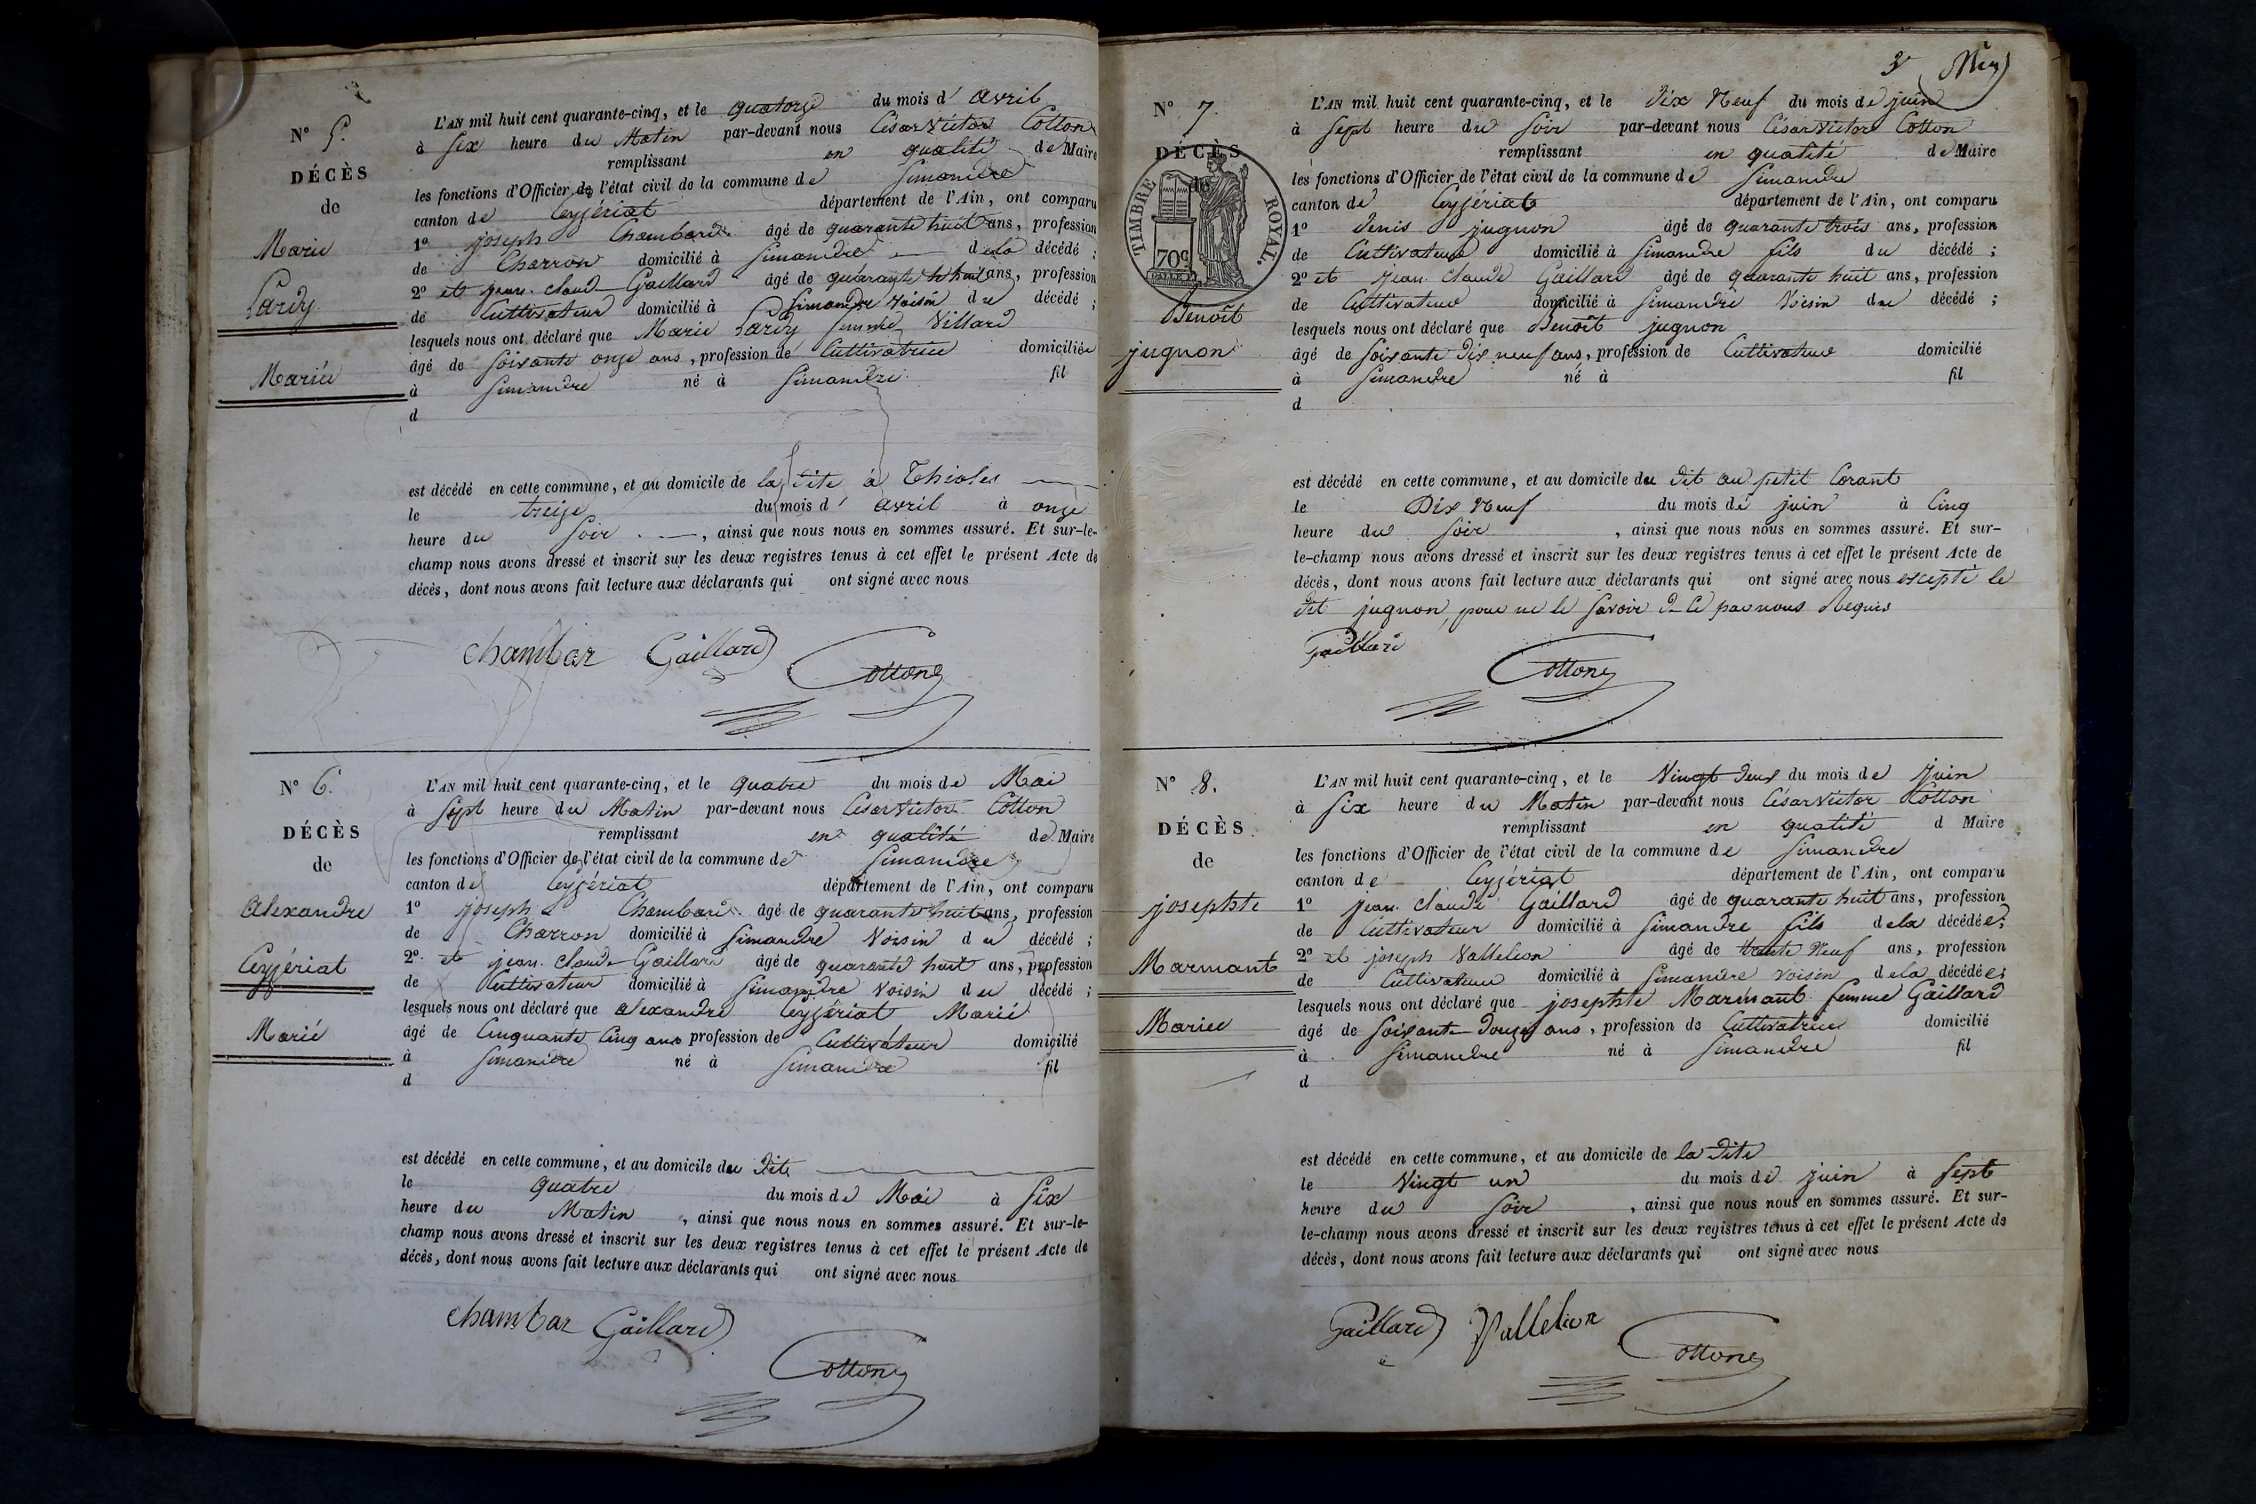 N° 5.
DÉCÈS
de
Marie
Pardy
Mariée
L'AN mil huit cent quarante-cinq, et le quatorze du mois d' avril
à six heure du Matin par-devant nous César Victor Cotton
remplissant en qualité de Maire
les fonctions d'Officier de l'état civil de la commune de Simandre
canton de Ceyzériat département de l'Ain, ont comparu
1° joseph Chambard âgé de quarante huit ans, profession
de Charron domicilié à Simandre de la décédé ;
2° et jean claude Gaillard âgé de quarante huit ans, profession
de Cultivateur domicilié à Simandre voisin du décédé ;
lesquels nous ont déclaré que Marie Pardy femme Villard
âgé de soixante onze ans, profession de Cultivatrice domiciliée
à Simandre né à Simandre fil
d
est décédé en cette commune, et au domicile de la dite à Thioles
le treize du mois d' avril à onze
heure du soir, ainsi que nous nous en sommes assuré. Et sur-le-
champ nous avons dressé et inscrit sur les deux registres tenus à cet effet le présent Acte de
décès, dont nous avons fait lecture aux déclarants qui ont signé avec nous
chambar Gaillard
Cotton
N° 6.
DÉCÈS
de
alexandre
Ceyzériat
Marié
L'AN mil huit cent quarante-cinq, et le quatre du mois de Mai
à sept heure du Matin par-devant nous César Victor Cotton
remplissant en qualité de Maire
les fonctions d'Officier de l'état civil de la commune de Simandre
canton de Ceyzériat département de l'Ain, ont comparu
1° joseph Chambard âgé de quarante huit ans, profession
de Charron domicilié à Simandre Voisin du décédé ;
2° et jean claude Gaillard âgé de quarante huit ans, profession
de Cultivateur domicilié à Simandre Voisin du décédé ;
lesquels nous ont déclaré que alexandre Ceyzériat Marié
âgé de Cinquante Cinq ans profession de Cultivateur domicilié
à Simandre né à Simandre fil
d
est décédé en cette commune, et au domicile du dite
le quatre du mois de Mai à six
heure du Matin, ainsi que nous nous en sommes assuré. Et sur-le-
champ nous avons dressé et inscrit sur les deux registres tenus à cet effet le présent Acte de
décès, dont nous avons fait lecture aux déclarants qui ont signé avec nous
chambar Gaillard
Cotton
3
N° 7.
DÉCÈS
TIMBRE ROYAL.
70c
Benoît
jugnon
L'AN mil huit cent quarante-cinq, et le dix Neuf du mois de juin
à sept heure du soir par-devant nous César Victor Cotton
remplissant en qualité de Maire
les fonctions d'Officier de l'état civil de la commune de Simandre
canton de Ceyzériat département de l'Ain, ont comparu
1° denis jugnon âgé de quarante trois ans, profession
de Cultivateur domicilié à Simandre fils du décédé ;
2° et jean claude Gaillard âgé de quarante huit ans, profession
de Cultivateur domicilié à Simandre Voisin du décédé ;
lesquels nous ont déclaré que Benoît jugnon
âgé de soixante dix neuf ans, profession de Cultivateur domicilié
à Simandre né à fil
d
est décédé en cette commune, et au domicile du dit au petit Corant
le Dix Neuf du mois de juin à Cinq
heure du soir, ainsi que nous nous en sommes assuré. Et sur-
le-champ nous avons dressé et inscrit sur les deux registres tenus à cet effet le présent Acte de
décès, dont nous avons fait lecture aux déclarants qui ont signé avec nous excepté le
dit jugnon, pour ne le savoir de ce par nous Requis
Gaillard
Cotton
N° 8.
DÉCÈS
de
josephte
Marmant
Mariée
L'AN mil huit cent quarante-cinq, et le Vingt deux du mois de juin
à six heure du Matin par-devant nous César Victor Cotton
remplissant en qualité d Maire
les fonctions d'Officier de l'état civil de la commune de Simandre
canton de Ceyzériat département de l'Ain, ont comparu
1° jean claude Gaillard âgé de quarante huit ans, profession
de Cultivateur domicilié à Simandre fils de la décédée ;
2° et joseph Vallelion âgé de trente Neuf ans, profession
de Cultivateur domicilié à Simandre voisin de la décédée ;
lesquels nous ont déclaré que josephte Marmant femme Gaillard
âgé de soixante douze ans, profession de Cultivatrice domicilié
à Simandre né à Simandre fil
d
est décédé en cette commune, et au domicile de la dite
le Vingt un du mois de juin à sept
heure du soir, ainsi que nous nous en sommes assuré. Et sur-
le-champ nous avons dressé et inscrit sur les deux registres tenus à cet effet le présent Acte de
décès, dont nous avons fait lecture aux déclarants qui ont signé avec nous
Gaillard Vallelion
Cotton